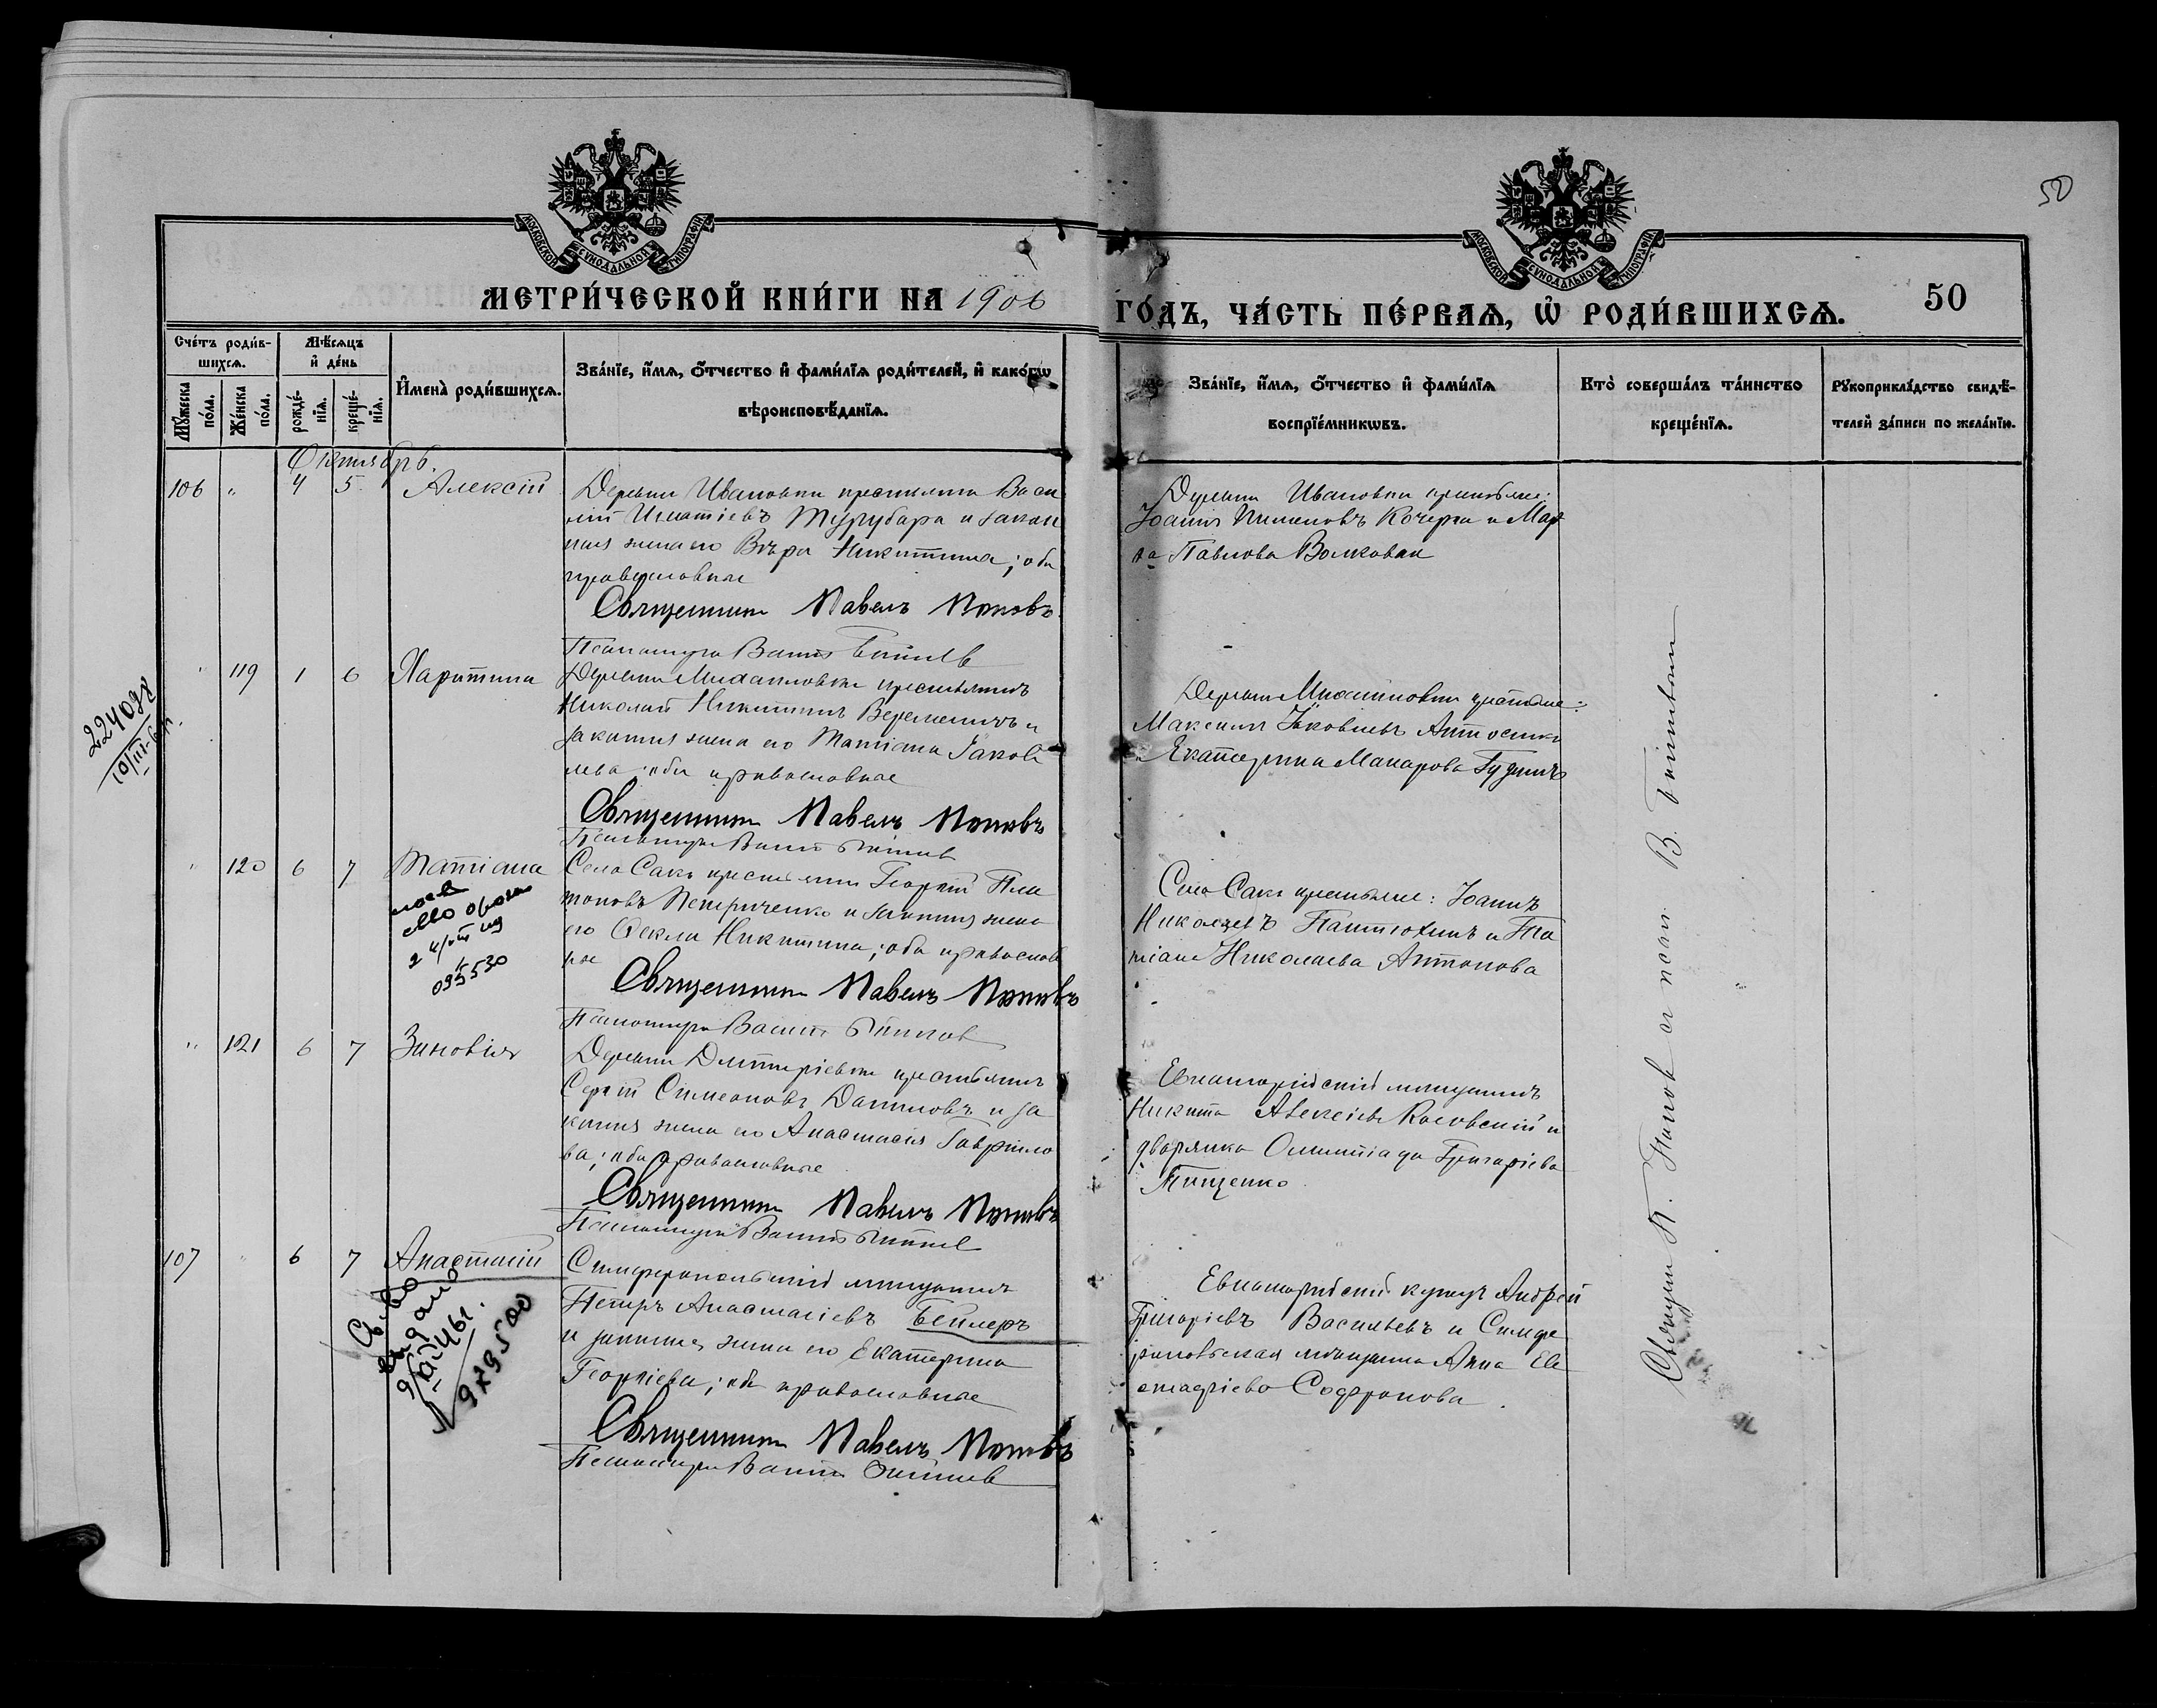 50
МОСКОВСКОЙ СѴНОДАЛЬНОЙ ТИПОГРАФІИ
МОСКОВСКОЙ СѴНОДАЛЬНОЙ ТИПОГРАФІИ
МЕТРИ́ЧЕСКОЙ КНИ́ГИ НА 1906
ГО́ДЪ, ЧА́СТЬ ПЕ́РВАЯ, Ѡ РОДИ́ВШИХСѦ.
50
Сче́тъ роди́в-
шихсѧ.
Мꙋжеска по́ла.
Же́нска по́ла.
Мѣ́сѧцъ
и҆ де́нь
рожде́-
нїѧ.
креще́-
нїѧ.
И҆мена̀ роди́вшихсѧ.
Зва́нїе, и҆́мѧ, ѻ҆́тчество и҆ фами́лїѧ роди́телей, и҆ како́гѡ
вѣроисповѣ́данїѧ.
Зва́нїе, и҆́мѧ, ѻ҆́тчество и҆ фами́лїѧ
воспрїе́мникѡвъ.
Кто̀ соверша́лъ та́инство
креще́нїѧ.
Рꙋкоприкла́дство свидѣ́-
телей за́писи по жела́нїю.
Октябрь.
106 " 4 5 Алексій
Деревни Ивановки крестьянинъ Васи
лій Игнатіевъ Турубара и закон
ная жена его Вѣра Никитина; оба
православные
Священникъ Павелъ Поповъ
Псаломщикъ
Деревни Ивановки крестьяне:
Іоаннъ Пименовъ Кочерга и Мар
ѳа Павлова Волковая
224098
" 119 1 6 Харитина
Деревни Михайловки крестьянинъ
Николай Никитинъ Веремеичъ и
законная жена его Татіана Іаков
лева; оба православные
Священникъ Павелъ Поповъ
Псаломщикъ
Деревни Михайловки крестьяне:
Максимъ Іаковлевъ
и Екатерина Макарова
" 120 6 7 Татіана
095530
Село Саки крестьянинъ Георгій Пла
тоновъ Петриченко и законная жена
его Ѳекла Никитина; оба православ
ные
Священникъ Павелъ Поповъ
Псаломщикъ
Село Саки крестьяне: Іоаннъ
Николаевъ Пантюхинъ и Та
тіана Николаева Антонова
" 121 6 7 Зиновія
Деревни Дмитріевки крестьянинъ
Сергій Симеоновъ Даниловъ и за
конная жена его Анастасія Гаврило
ва; оба православные
Священникъ Павелъ Поповъ
Псаломщикъ
Евпаторійскій мѣщанинъ
Никита Алексіевъ Косовскій и
дворянка Олимпіада Григоріева
Тищенко
107 " 6 7 Анастасій
выдано
№ 929500
Симферопольскій мѣщанинъ
Петръ Анастасіевъ Бейлеръ
и законная жена его Екатерина
Георгіева; оба православные
Священникъ Павелъ Поповъ
Псаломщикъ
Евпаторійскій купецъ Андрей
Григоріевъ Васильевъ и Симфе
ропольская мѣщанка Анна Ев
стафіева Софронова.
Священникъ П. Попов и псал. В.